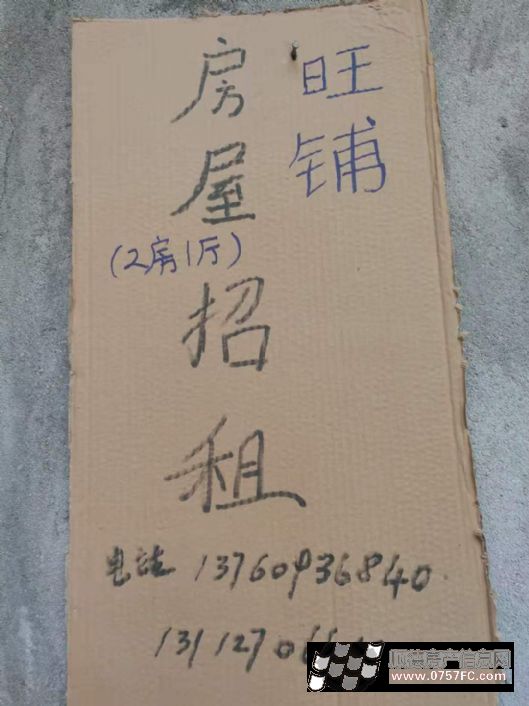 旺铺
房屋招租
(2房1厅)
电话 13760936840
1312706
顺德房产信息网
www.0757FC.com